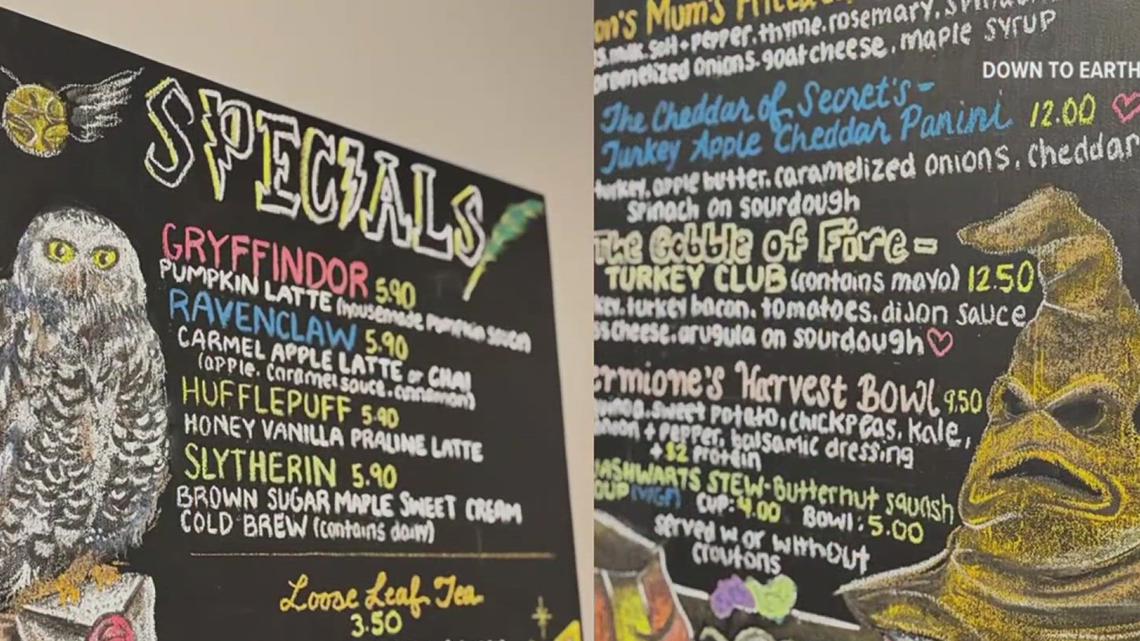 SPECIALS
GRYFFINDOR 5.90
PUMPKIN LATTE (housemade pumpkin sauce)
RAVENCLAW 5.90
CARMEL APPLE LATTE or CHAI
(apple, caramel sauce, cinnamon)
HUFFLEPUFF 5.90
HONEY VANILLA PRALINE LATTE
SLYTHERIN 5.90
BROWN SUGAR MAPLE SWEET CREAM
COLD BREW (contains dairy)
Loose Leaf Tea
3.50
on's Mum's
salt + pepper, thyme, rosemary,
caramelized onions, goat cheese, maple syrup
DOWN TO EARTH
The Cheddar of Secret's -
Turkey Apple Cheddar Panini 12.00
turkey, apple butter, caramelized onions, cheddar
spinach on sourdough
The Gobble of Fire -
TURKEY CLUB (contains mayo) 12.50
turkey bacon, tomatoes, dijon sauce
cheese, arugula on sourdough
ermione's Harvest Bowl 9.50
sweet potato, chickpeas, kale,
+ pepper, balsamic dressing
+ $2 protein
ASHWARTS STEW - Butternut squash
OUP (VGF) CUP: 4.00 Bowl: 5.00
served w or without
croutons